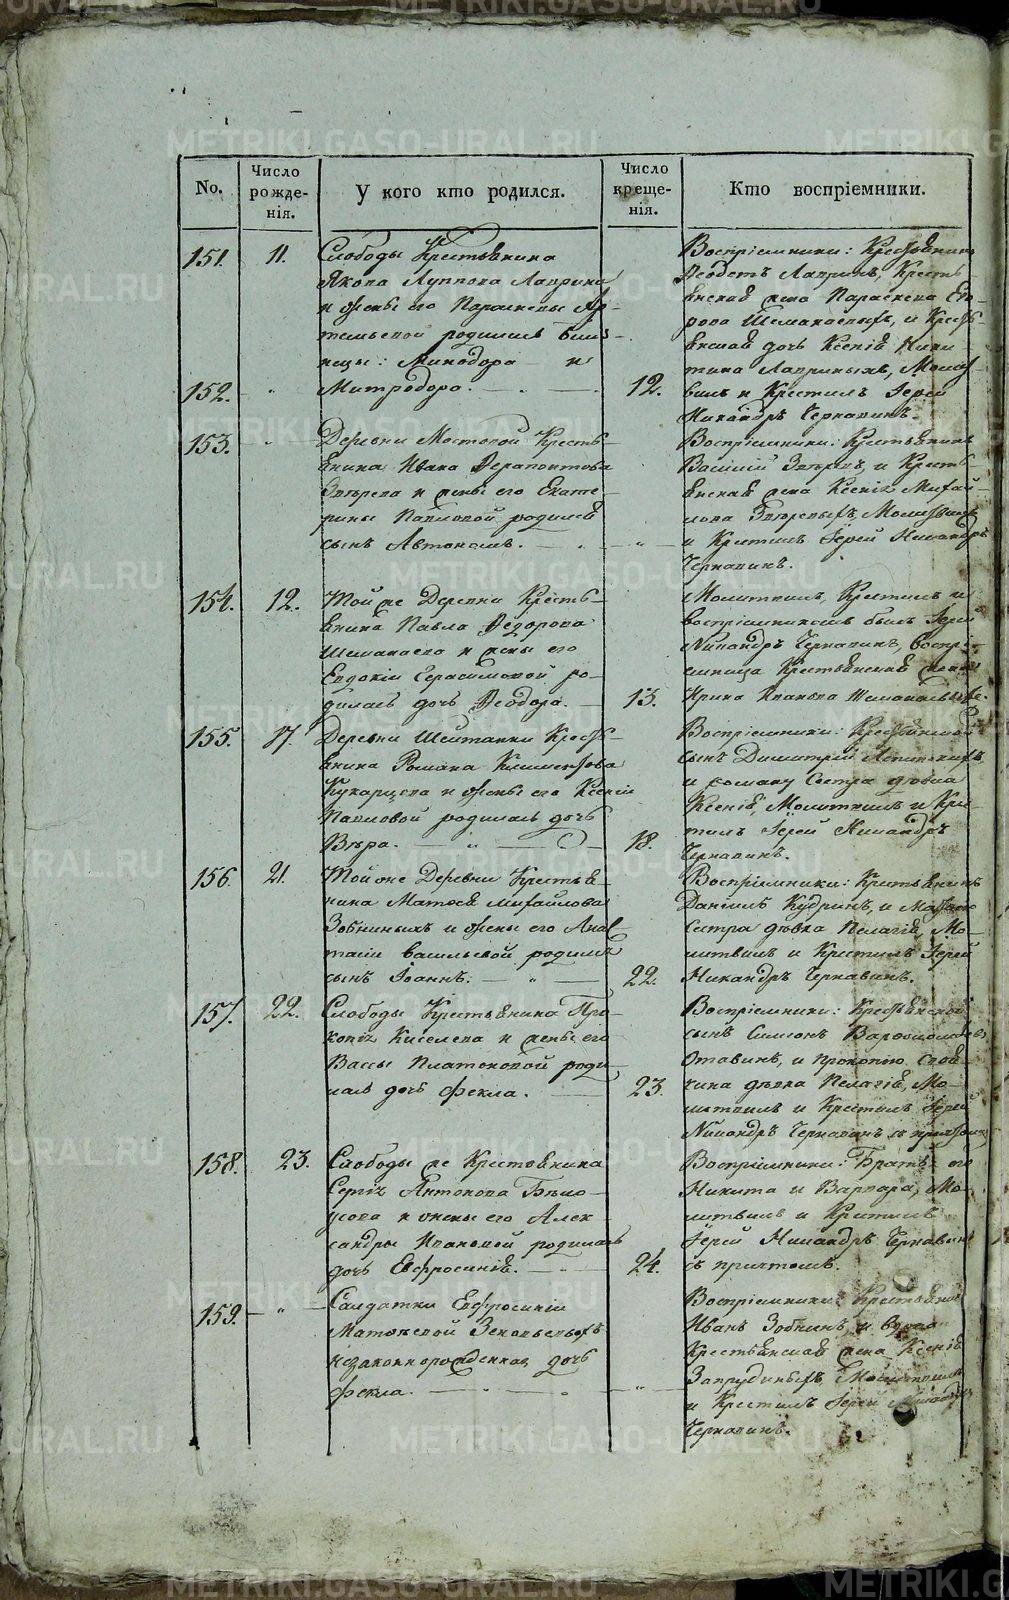 METRIKI.GASO-URAL.RU
No.
Число рожденія.
У кого кто родился.
Число крещенія.
Кто воспріемники.
151.
11.
Слободы Крестьянина
Якова Луппова Лаврина
и жены его Параскевы Ар-
темьевой родились близ-
нецы: Минодора и
152.
Митродора.
12.
Воспріемники: Крестьянинъ
Лавринъ, Кресть-
янская жена Параскева Его-
рова и Кресть-
янская дочь Ксенія Ники-
тина Лавриныхъ, Молит-
вилъ и Крестилъ Іерей
Никандръ Чернавинъ.
153.
Деревни Мостовой Кресть-
янина Ивана Ферапонтова
Звѣрева и жены его Екате-
рины Павловой родился
сынъ Автономъ.
Воспріемники: Крестьянинъ
Василій Звѣревъ, и Кресть-
янская жена Ксенія Михай-
лова Звѣревыхъ, Молитвилъ
и Крестилъ Іерей Никандръ
Чернавинъ.
154.
12.
Той же Деревни Кресть-
янина Павла Федорова
Шеманаева и жены его
Евдокіи Герасимовой ро-
дилась дочь Феодора.
13.
Молитвилъ, Крестилъ и
воспріемникомъ былъ Іерей
Никандръ Чернавинъ, воспрі-
емница Крестьянская жена
Ирина Иванова
155.
17.
Деревни Шейтанки Кресть-
янина Романа Климентова
Кухарцева и жены его Ксеніи
Павловой родилась дочь
Вѣра.
18.
Воспріемники: Крестьянской
сынъ Димитрій
и роману Сестра дѣвка
Ксенія, Молитвилъ и Крес-
тилъ Іерей Никандръ
Чернавинъ.
156.
21.
Той же Деревни Крестья-
нина Матвея Михайлова
Зобниныхъ и жены его Анас-
тасіи Васильевой родился
сынъ Іоаннъ.
22.
Воспріемники: Крестьянинъ
Даніилъ Кудринъ, и
Сестра дѣвка Пелагія, Мо-
литвилъ и Крестилъ Іерей
Никандръ Чернавинъ.
157.
22.
Слободы Крестьянина Про-
копія Киселева и жены его
Вассы Платоновой роди-
лась дочь Фекла.
23.
Воспріемники: Крестьянской
сынъ Симеонъ Варфоломеевъ
Отавинъ, и Прокопію своя-
чина дѣвка Пелагія, Мо-
литвилъ и Крестилъ Іерей
Никандръ Чернавинъ съ причтомъ.
158.
23.
Слободы же Крестьянина
Сергія Антонова Бѣло-
усова и жены его Алек-
сандры Ивановой родилась
дочь Евфросинія.
24.
Воспріемники: Братъ его
Никита и Варвара, Мо-
литвилъ и Крестилъ
Іерей Никандръ Чернавинъ
съ причтомъ.
159.
Салдатки Евфросиніи
Матвеевой Зеновьевыхъ
незаконнорожденная дочь
Фекла.
Воспріемники: Крестьянинъ
Иванъ Зобнинъ и
Крестьянская жена Ксенія
Запрудиныхъ, Молитвилъ
и Крестилъ Іерей Никандръ
Чернавинъ.